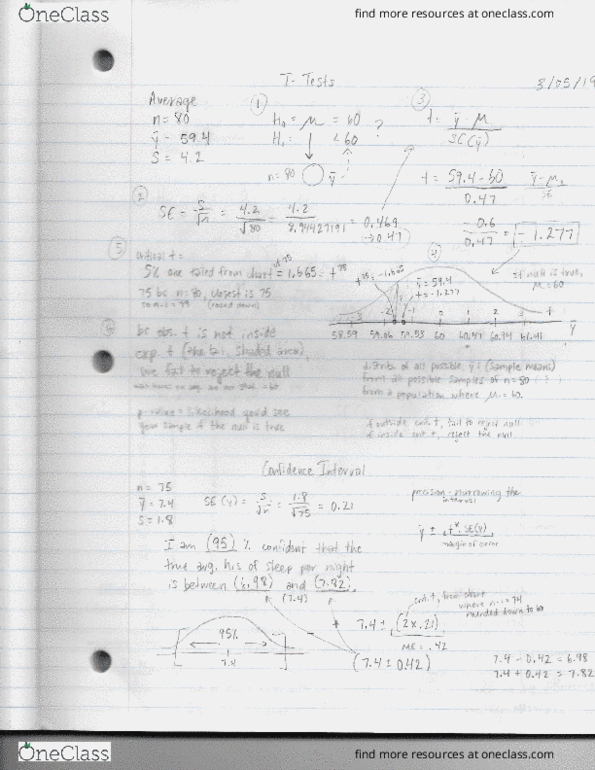 OneClass
find more resources at oneclass.com
T-Tests
3/05/19
Average
n = 80
ȳ = 59.4
S = 4.2
①
H₀ = μ = 60
< 60
?
n = 80
ȳ
③
t = ȳ - μ
SE(ȳ)
t = 59.4 - 60
0.47
-0.6
0.47
= -1.277
②
SE = S/√n = 4.2/√80 = 4.2/8.94427191 = 0.469
→ 0.47
⑤ critical t =
5% one tailed from chart = 1.665 = t*⁷⁵
75 bc n = 80, closest is 75
④
ȳ = 59.4
t = -1.277
If null is true,
μ = 60
-3 -2 -1 0 1 2 3
58.59 59.06 59.53 60 60.47 60.94 61.41 ȳ
⑥ bc obs. t is not inside
exp. t (the 5% shaded area),
we fail to reject the null
p-value = likelihood you'd see
your sample if the null is true
distrib of all possible ȳ's (sample means)
from all possible samples of n = 80
from a population where μ = 60.
if outside crit. t, fail to reject null
if inside crit. t, reject the null
Confidence Interval
n = 75
ȳ = 7.4
S = 1.8
SE(ȳ) = S/√n = 1.8/√75 = 0.21
precision - narrowing the
interval
ȳ ± t*·SE(ȳ)
margin of error
I am (95)% confident that the
true avg. hrs of sleep per night
is between (6.98) and (7.82).
(7.4)
crit. t, from chart
where n-1 = 74
rounded down to 60
95%
7.4
7.4 ± (2 x .21)
ME = .42
(7.4 ± 0.42)
7.4 - 0.42 = 6.98
7.4 + 0.42 = 7.82
OneClass
find more resources at oneclass.com